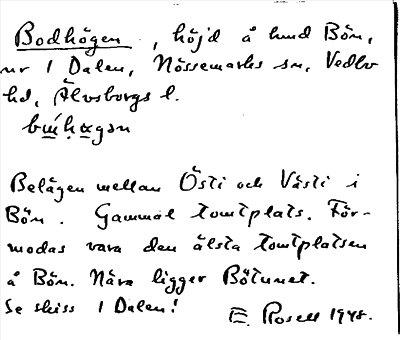 Bodhögen, höjd å hmd Bön,
nr 1 Dalen, Nössemarks sn, Vedbo
hd, Älvsborgs l.
Belägen mellan Östi och Västi i
Bön. Gammal tomtplats. För-
modas vara den älsta tomtplatsen
å Bön. Nära ligger Bötunet.
Se skiss 1 Dalen!
E. Rosell 1948.